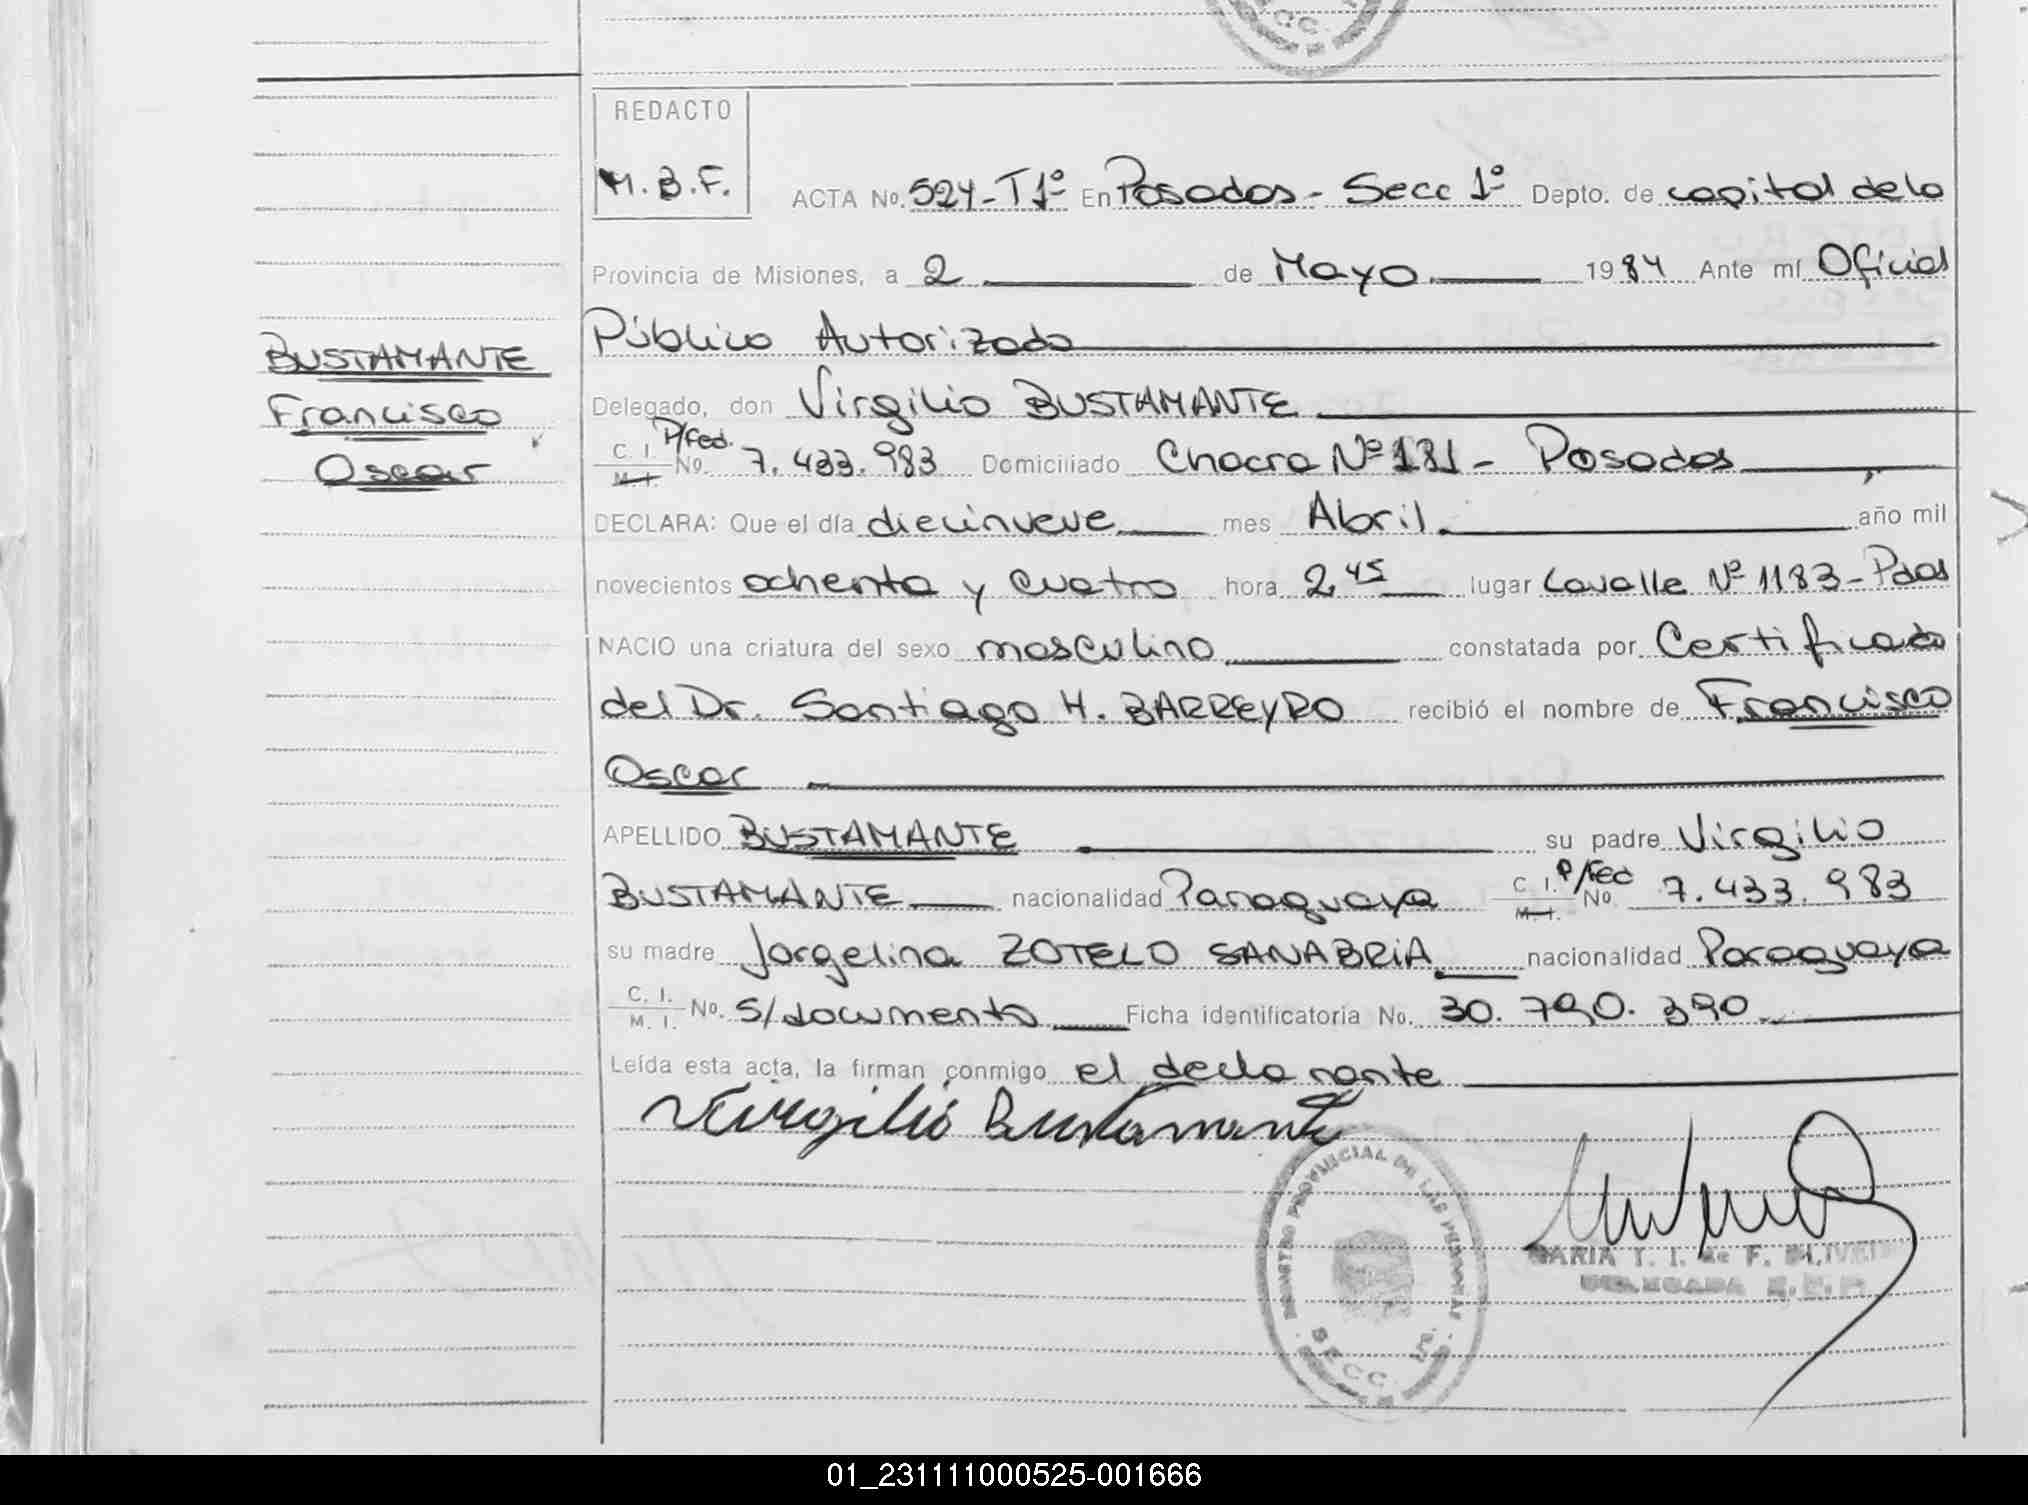 REDACTO
M.B.F.
ACTA No. 524-T1º En Posadas - Secc 1º Depto. de capital de la
Provincia de Misiones, a 2 de Mayo 1984 Ante mí Oficial
Público Autorizado
Delegado, don Virgilio BUSTAMANTE
C. I. M. I. No. P/Fed. 7.433.983 Domiciliado Chacra Nº 181 - Posadas
DECLARA: Que el día diecinueve mes Abril año mil
novecientos ochenta y cuatro hora 2,45 lugar Lavalle Nº 1183 - Pdas
NACIO una criatura del sexo masculino constatada por Certificado
del Dr. Santiago H. BARREYRO recibió el nombre de Francisco
Oscar
APELLIDO BUSTAMANTE su padre Virgilio
BUSTAMANTE nacionalidad Paraguaya C. I. M. I. P/Fed No 7.433.983
su madre Jorgelina ZOTELO SANABRIA nacionalidad Paraguaya
C. I. M. I. No. S/documento Ficha identificatoria No. 30.790.390
Leída esta acta, la firman conmigo el declarante
Virgilio Bustamante
BUSTAMANTE
Francisco
Oscar
REGISTRO PROVINCIAL DE LAS PERSONAS
SECC.
MARIA T. I. de F. OLIVEIRA
DELEGADA
01_231111000525-001666